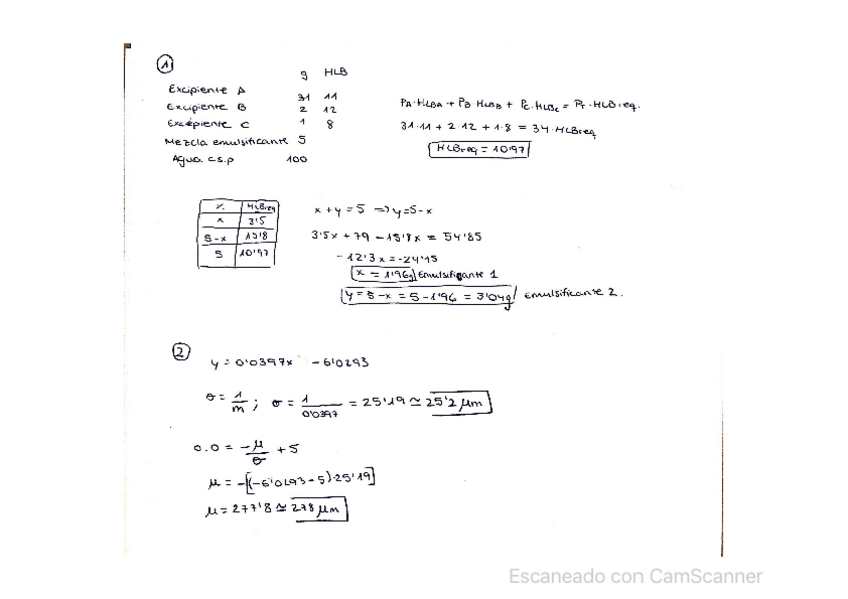 1
g HLB
Excipiente A 31 11
Excipiente B 2 12
Excipiente C 1 8
Mezcla emulsificante 5
Agua c.s.p 100
PA·HLBA + PB·HLBB + PC·HLBC = PT·HLBreq.
31·11 + 2·12 + 1·8 = 34·HLBreq
HLBreq = 10'97
% HLBreq
x 3'5
5-x 15'8
5 10'97
x + y = 5 => y=5-x
3'5x + 79 - 15'8x = 54'85
-12'3x = -24'15
x = 1'96g Emulsificante 1
y = 5-x = 5-1'96 = 3'04g Emulsificante 2.
2
y = 0'0397x - 6'0293
σ = 1/m ; σ = 1/0'0397 = 25'19 ≃ 25'2 μm
0.0 = -μ/σ + 5
μ = -[(-6'0293-5)·25'19]
μ = 277'8 ≃ 278 μm
Escaneado con CamScanner